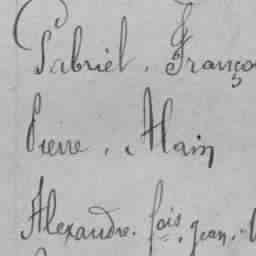 Gabriel. Franço
Pierre. Alain
Alexandre. fois. Jean.